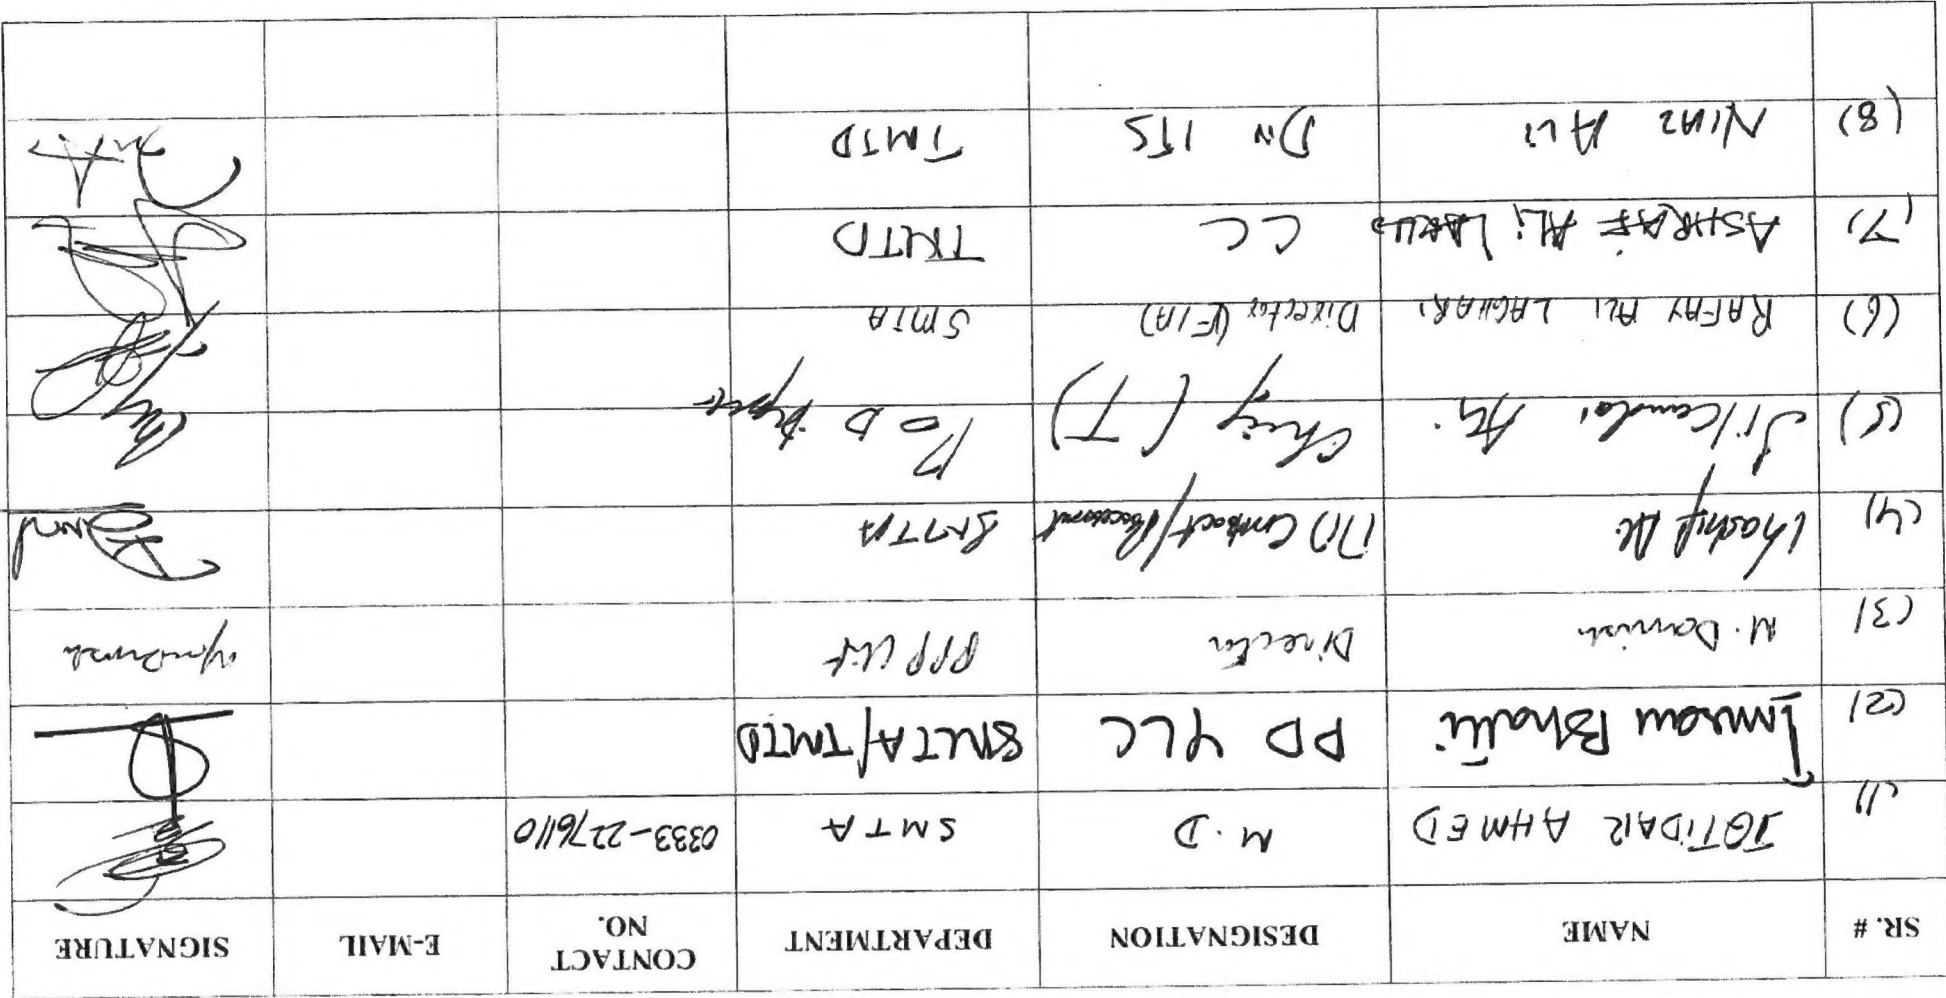 SR. # NAME DESIGNATION DEPARTMENT CONTACT NO. E-MAIL SIGNATURE
(1) IQTIDAR AHMED M.D SMTA 0333-2276110
(2) Imran Bhatti PD YLC SMTA/TMTD
(3) M. Danish Director PPP Unit
(4) Khadif Ali Contract/ SMTA
(5) Ali Chief (T) P&D
(6) RAFAY ALI LAGHARI Director (F/A) SMTA
(7) ASHRAF ALI CC TMTD
(8) NIAZ ALI Dir ITS TMTD